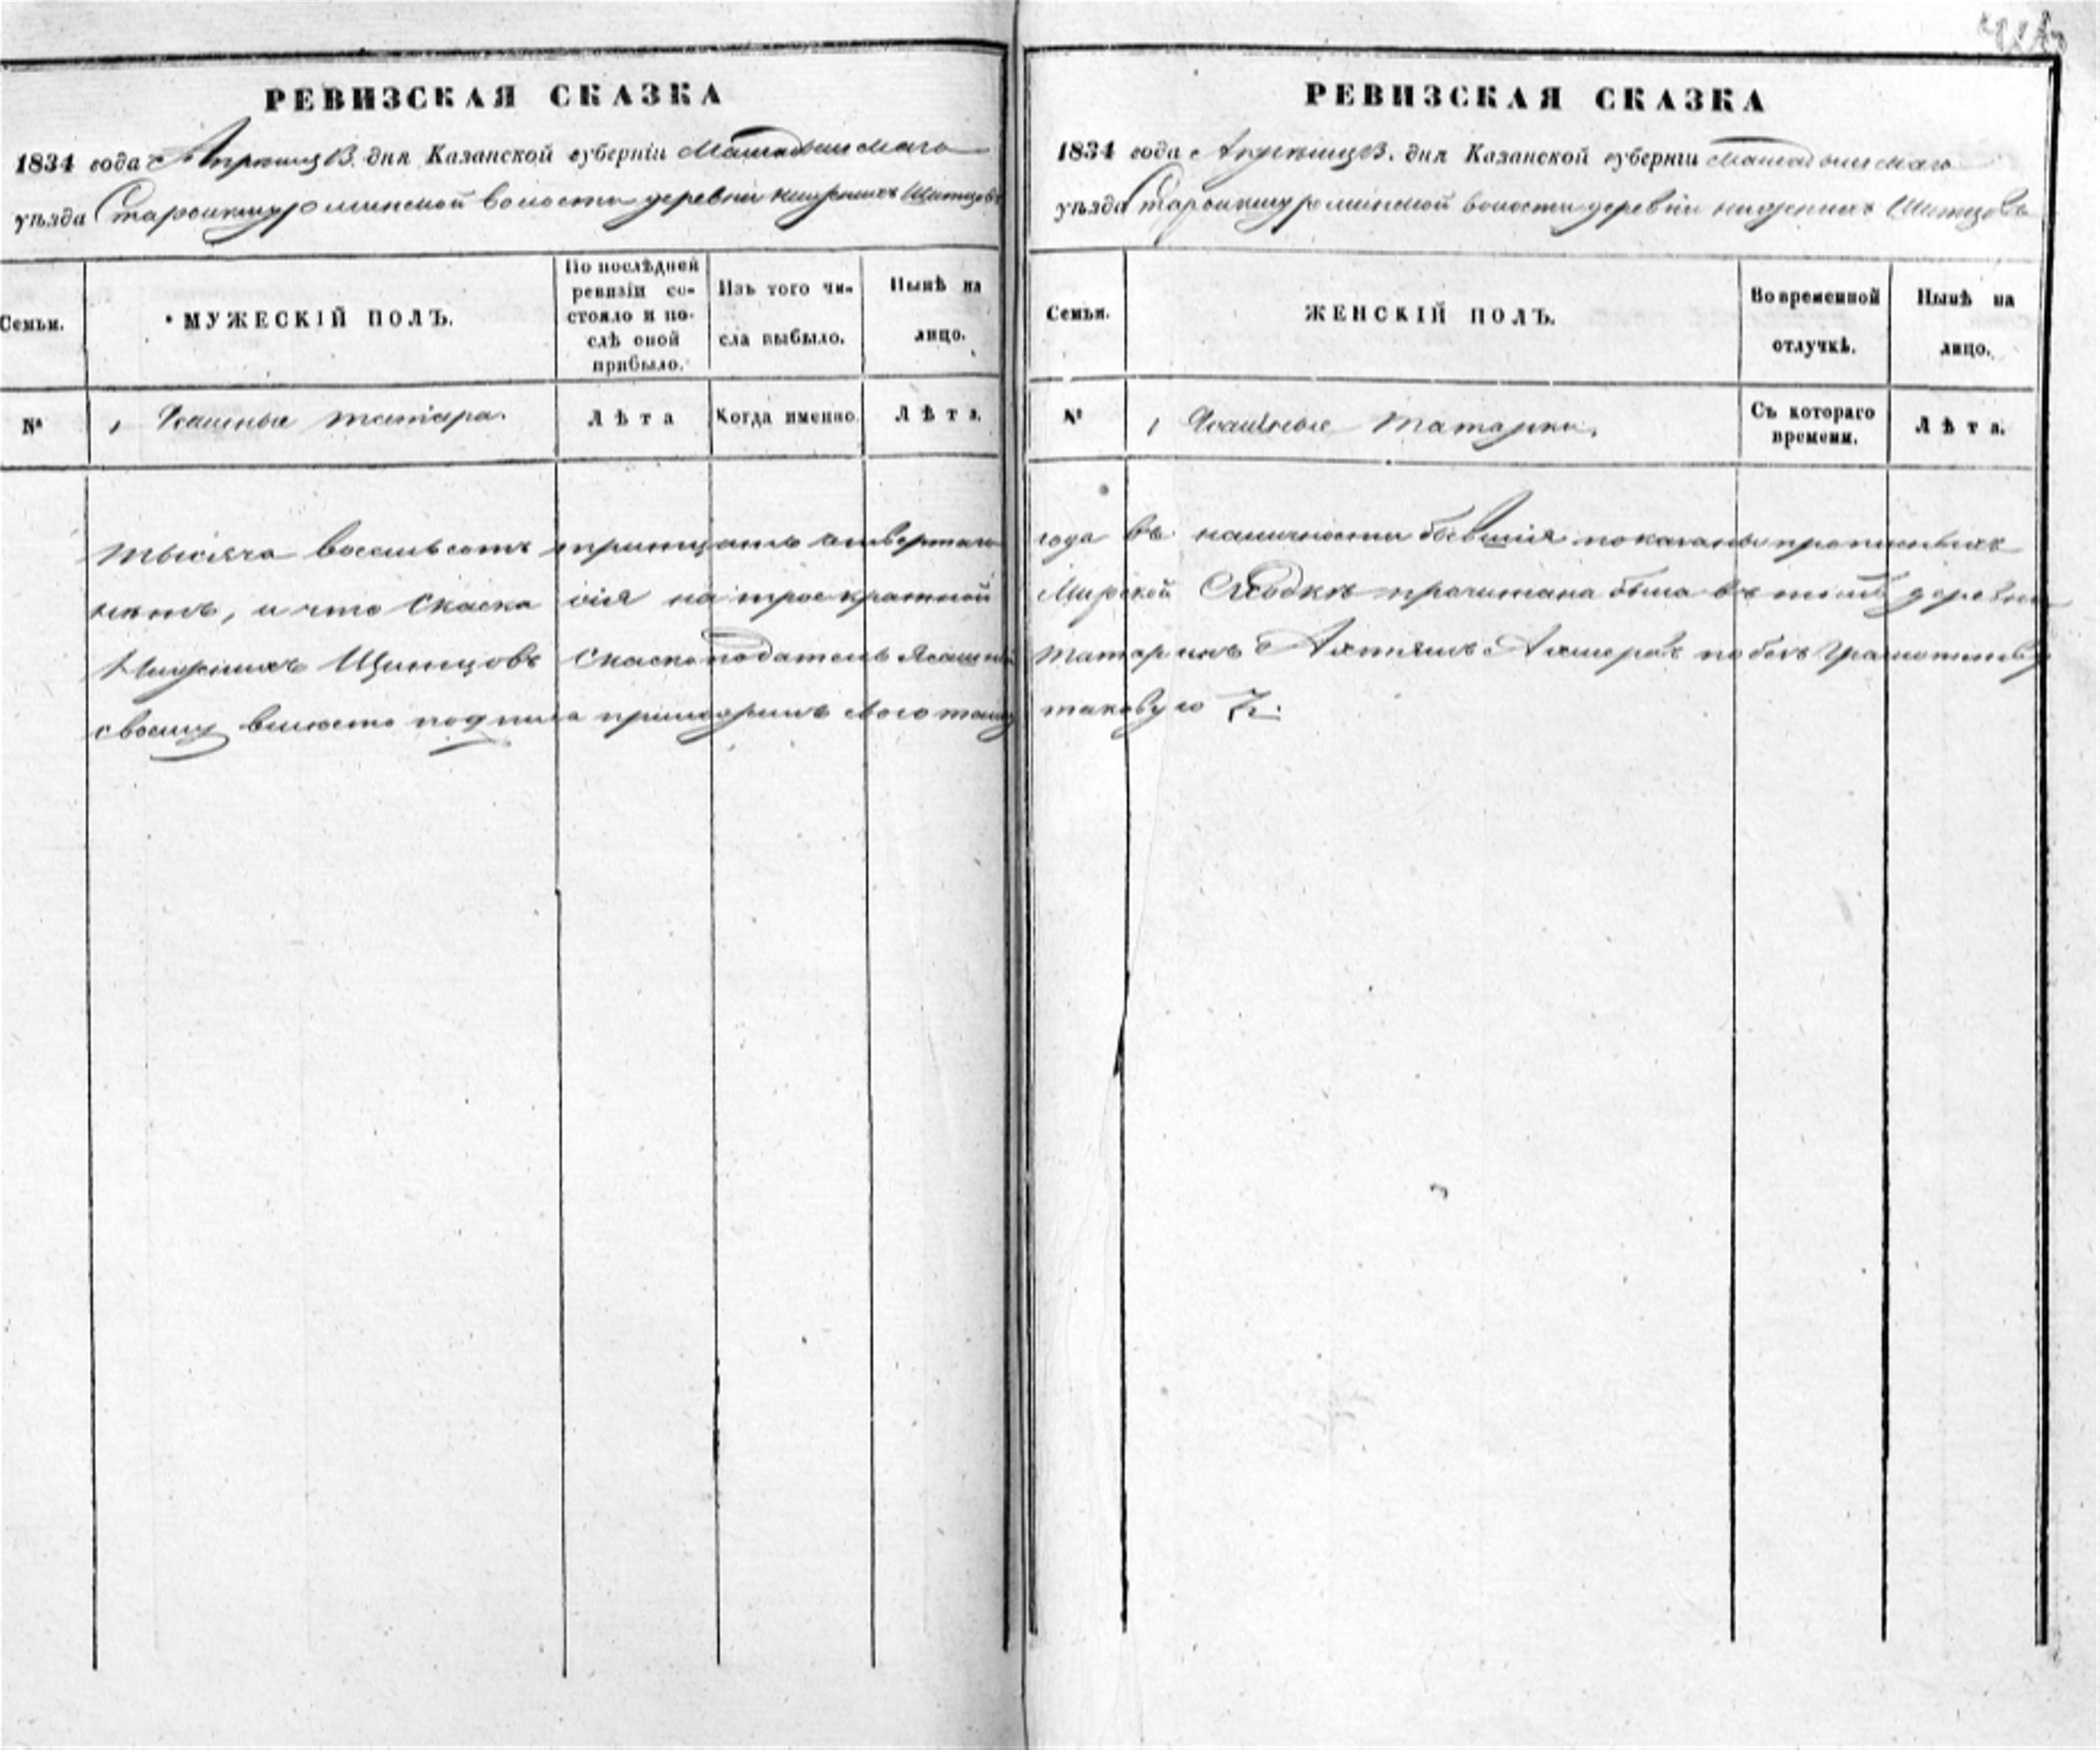 РЕВИЗСКАЯ СКАЗКА
1834 года Апрѣля 13. дня Казанской губерніи Мамадышскаго
уѣзда Старо волости деревни нижнихъ Шитцовъ
Семьи.
МУЖЕСКІЙ ПОЛЪ.
По послѣдней
ревизіи со-
стояло и по-
слѣ оной
прибыло.
Изъ того чи-
сла выбыло.
Нынѣ на
лицо.
№
Ясашные татара.
Лѣта
Когда именно.
Лѣта.
тысяча восемьсотъ тритцать четвертаго
нѣтъ, и что Скаска сія на троекратной
Нижнихъ Шитцовъ Скаскоподатель Ясашный
своему вмѣсто подписа приложилъ свою тамгу
РЕВИЗСКАЯ СКАЗКА
1834 года Апрѣля 13. дня Казанской губерніи Мамадышскаго
уѣзда Старо волости деревни нижнихъ Шитцовъ
Семьи.
ЖЕНСКІЙ ПОЛЪ.
Во временной
отлучкѣ.
Нынѣ на
лицо.
№
Ясашные татарки.
Съ котораго
времени.
Лѣта.
года въ наличности бывшія показаны прописныхъ
Мирской Сходкѣ прочитана была въ той деревни
татаринъ по безъ грамотству
таковую